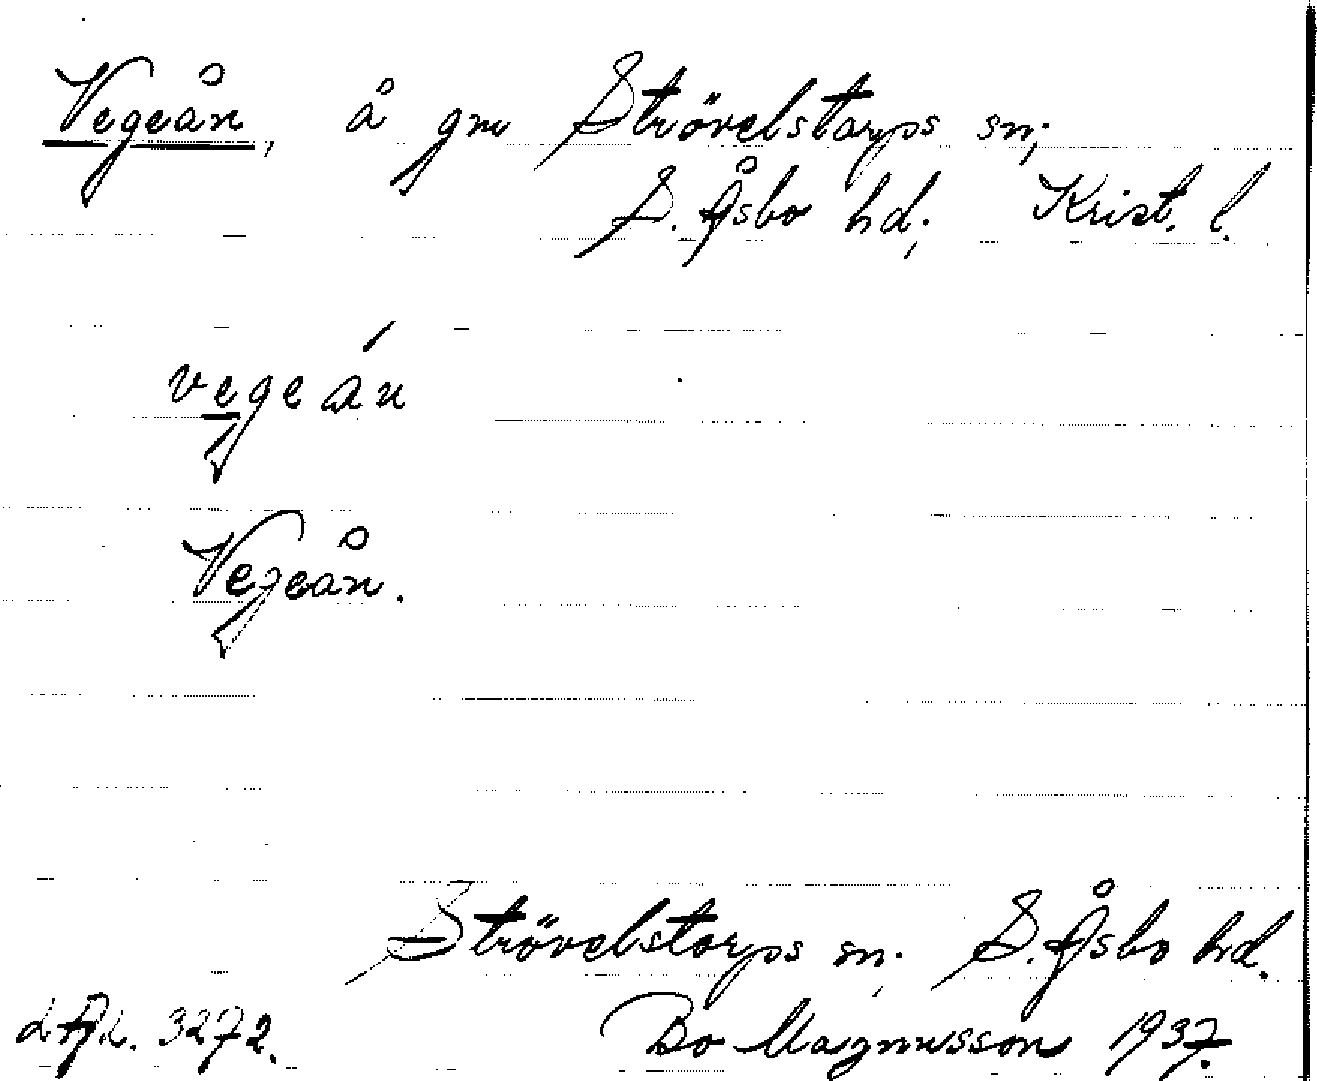 Vegeån, å gm Strövelstorps sn;
S. Åsbo hd; Krist. l.
vegeán
Vegeån.
Strövelstorps sn; S. Åsbo hd.
3272. Bo Magnusson 1937.